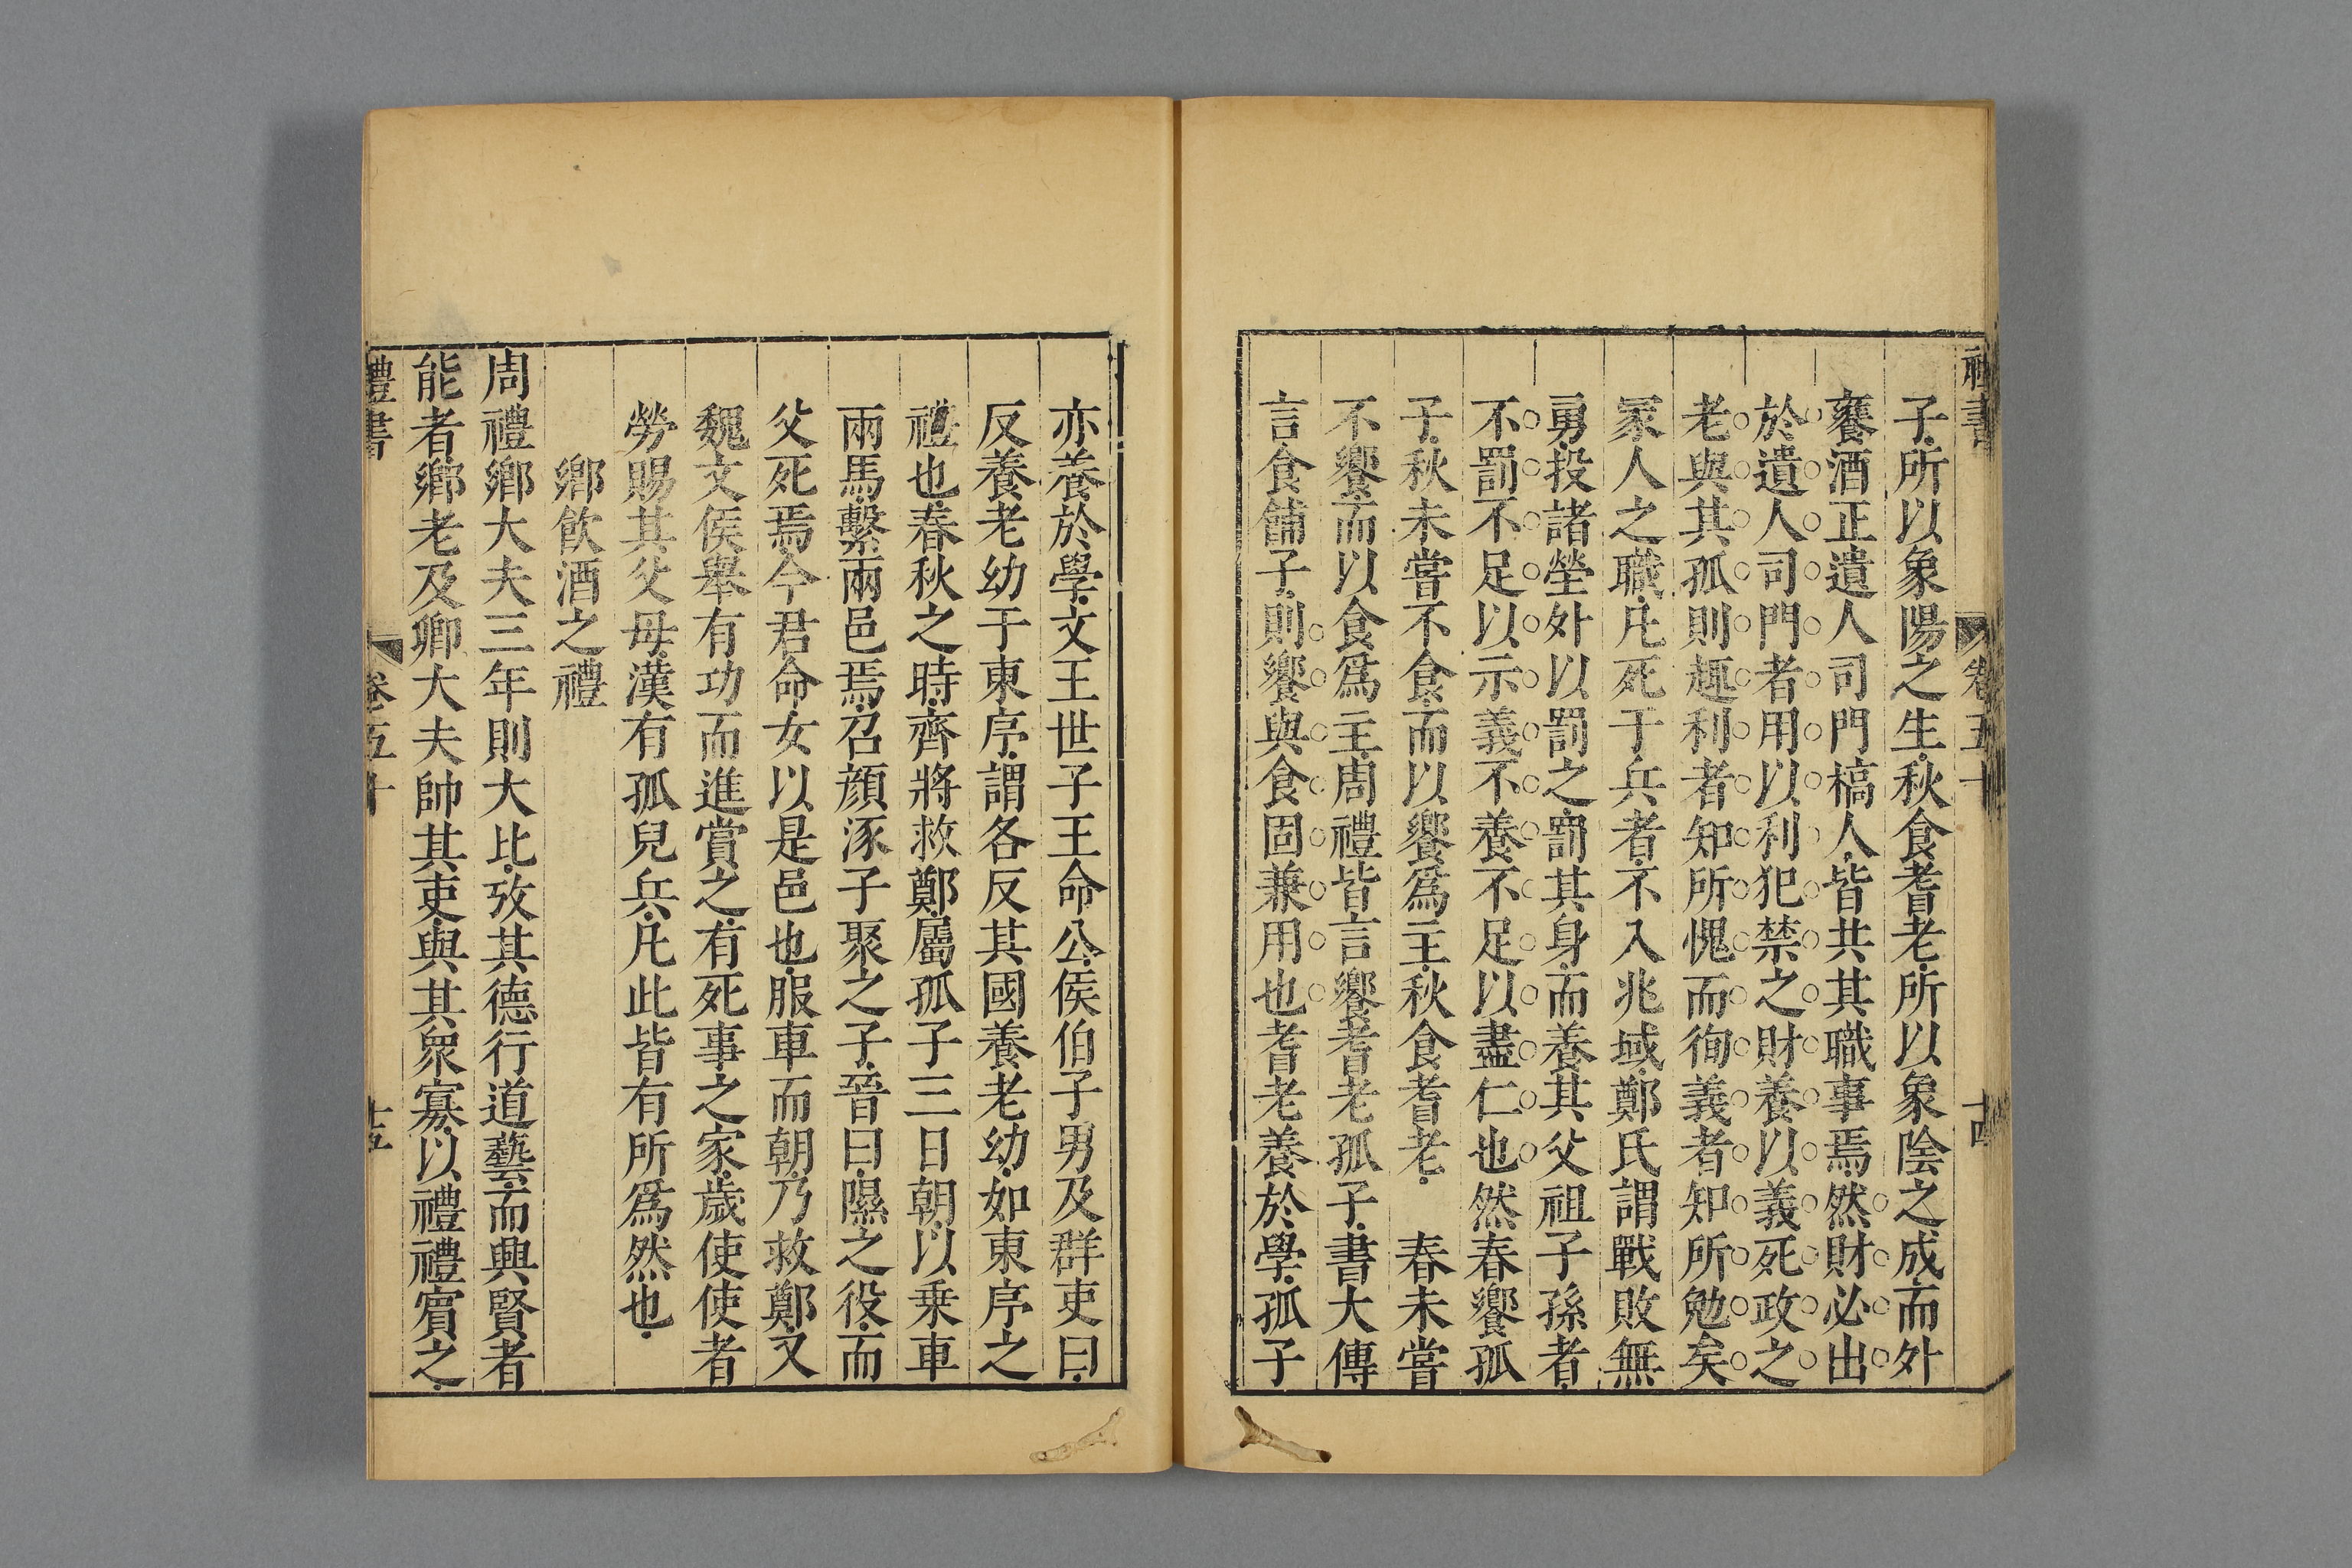 禮書
卷五十
十四
子所以象陽之生秋食耆老所以象陰之成而外
饔酒正遺人司門槁人皆共其職事焉然財必出
於遺人司門者用以利犯禁之財養以義死政之
老與其孤則趣利者知所愧而徇義者知所勉矣
冢人之職凡死于兵者不入兆域鄭氏謂戰敗無
勇投諸塋外以罰之罰其身而養其父祖子孫者
不罰不足以示義不養不足以盡仁也然春饗孤
子秋未嘗不食而以饗爲主秋食耆老 春未嘗
不饗而以食爲主周禮皆言饗耆老孤子書大傳
言食餔子則饗與食固兼用也耆老養於學孤子
亦養於學文王世子王命公侯伯子男及群吏曰
反養老幼于東序謂各反其國養老幼如東序之
禮也春秋之時齊將救鄭屬孤子三日朝以乗車
兩馬繫兩邑焉召顔涿子聚之子晉曰隰之役而
父死焉今君命女以是邑也服車而朝乃救鄭又
魏文侯舉有功而進賞之有死事之家歲使使者
勞賜其父母漢有孤兒兵凡此皆有所爲然也
鄉飲酒之禮
周禮鄉大夫三年則大比攷其德行道藝而興賢者
能者鄉老及卿大夫帥其吏與其衆寡以禮禮賓之
禮書
卷五十
十五